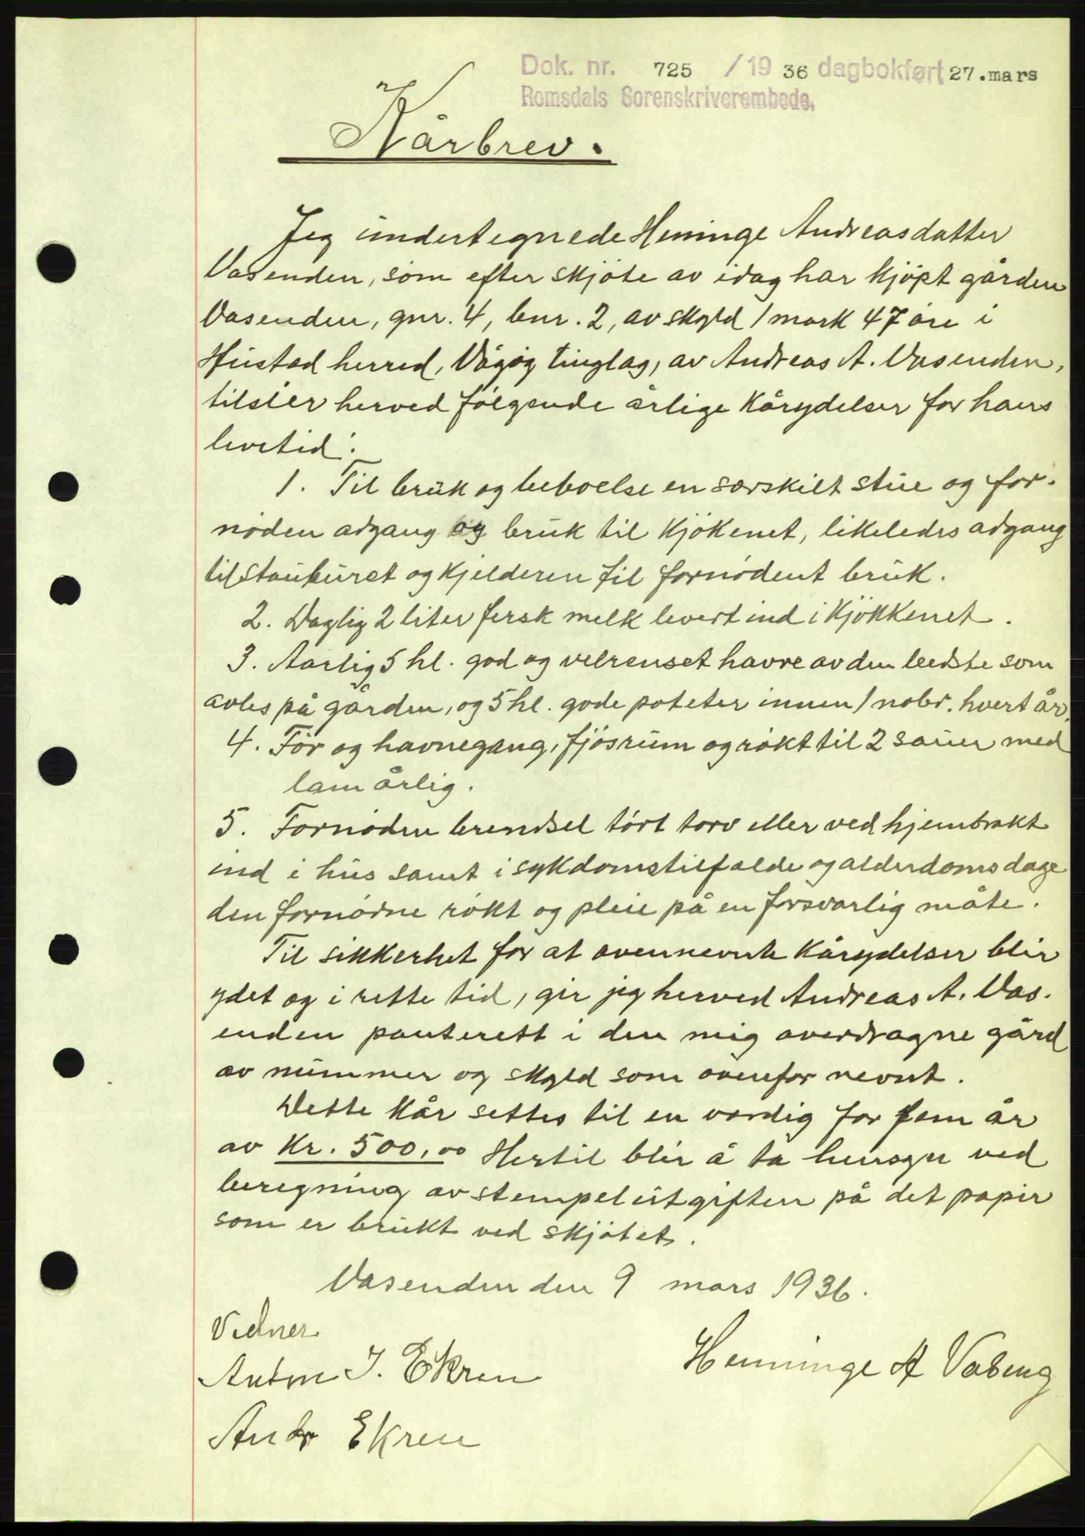 Dok. nr. 725 / 19 36 dagbokført 27. mars
Romsdals Sorenskriverembede.
Kårbrev.
Jeg undertegnede Heninge Andreasdatter
Vasenden, som efter skjöte av idag har kjöpt gården
Vasenden, gnr. 4, bnr. 2, av skyld 1 mark 47 öre i
Hustad herred, Vågøy tinglag, av Andreas A. Vasenden,
tilsier herved følgende årlige kårydelser for hans
levetid:
1. Til bruk og beboelse en særskilt stue og for-
nøden adgang og bruk til kjökenet, likeledes adgang
til stabburet og kjelderen til fornødent bruk.
2. Daglig 2 liter fersk melk levert ind i kjökkenet.
3. Aarlig 5 hl. god og velrenset havre av den bedste som
avles på gården, og 5 hl. gode poteter innen 1 nobr. hvert år.
4. Fór og havnegang, fjösrum og røkt til 2 sauer med
lam årlig.
5. Fornøden brendsel tørt torv eller ved hjembrakt
ind i hus samt i sykdomstilfælde og alderdoms dage
den fornødne røkt og pleie på en forsvarlig måte.
Til sikkerhet for at ovennevnte kårydelser blir
ydet og i rette tid, gir jeg herved Andreas A. Vas-
enden panterett i den mig overdragne gård
av nummer og skyld som ovenfor nevnt.
Dette kår settes til en verdig for fem år
av kr. 500,00 Hertil blir å ta hensyn ved
beregning av stempelutgiften på det papir
som er brukt ved skjøtet.
Vasenden den 9 mars 1936.
Vidner
Anton J. Ekren
Henninge A Vaseng
Andr Ekren